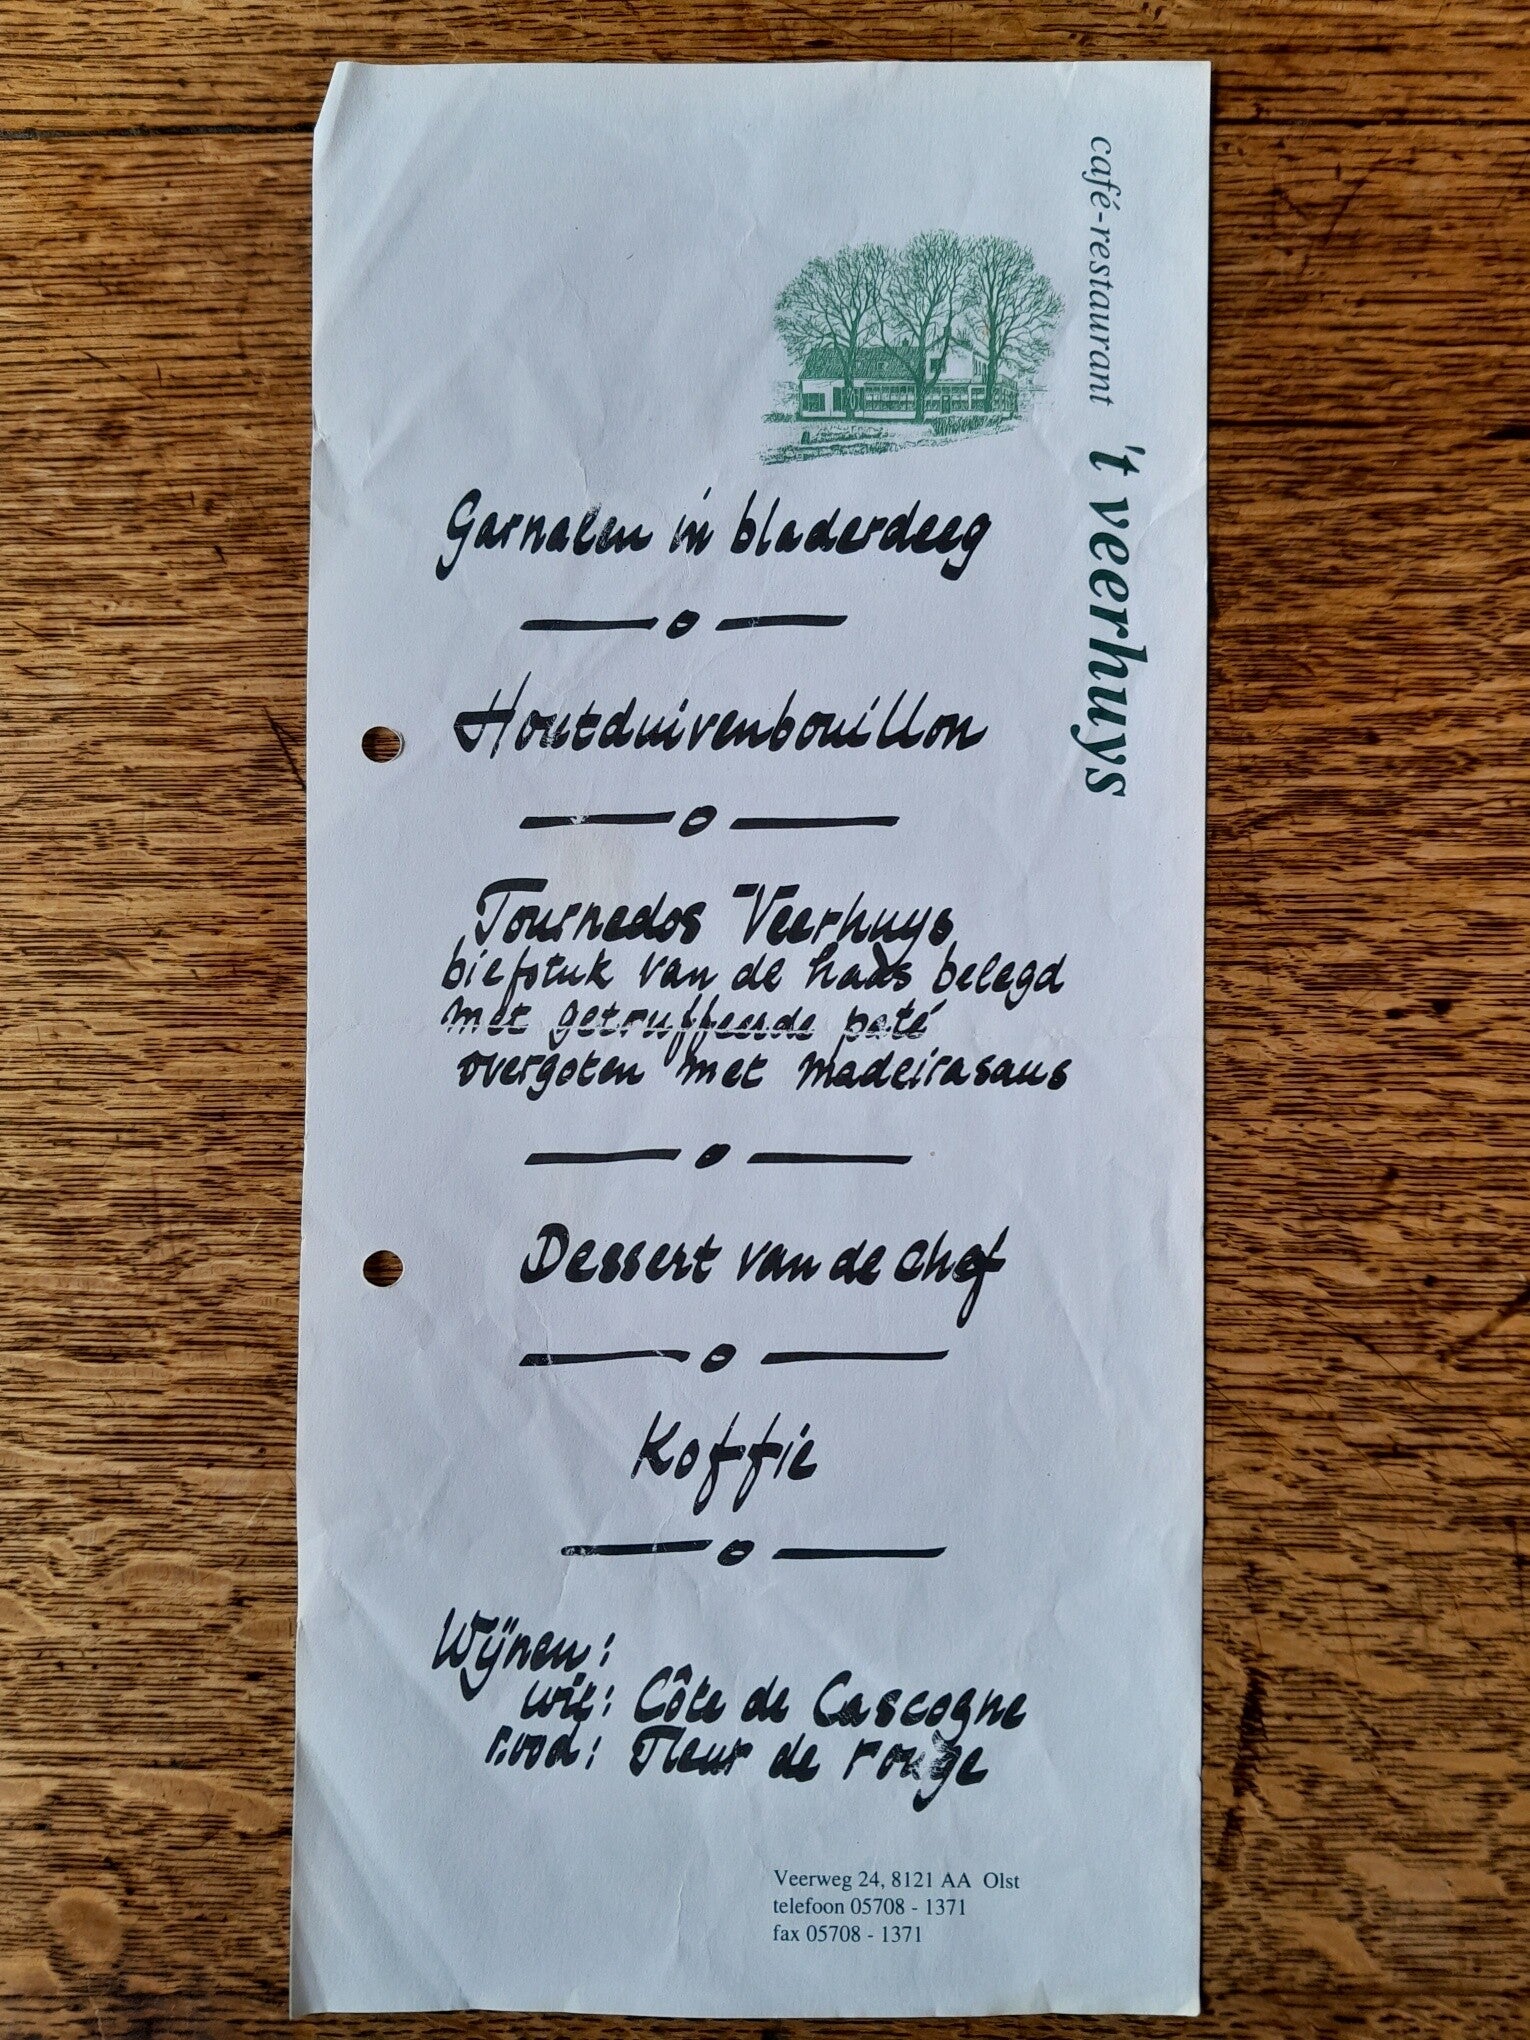 café-restaurant 't veerhuys
Garnalen in bladerdeeg
Houtduivenbouillon
Tournedos Veerhuys
biefstuk van de haas belegd
met getruffeerde paté
overgoten met madeirasaus
Dessert van de chef
Koffie
Wijnen:
wit: Côte de Gascogne
rood: Fleur de rouge
Veerweg 24, 8121 AA Olst
telefoon 05708 - 1371
fax 05708 - 1371